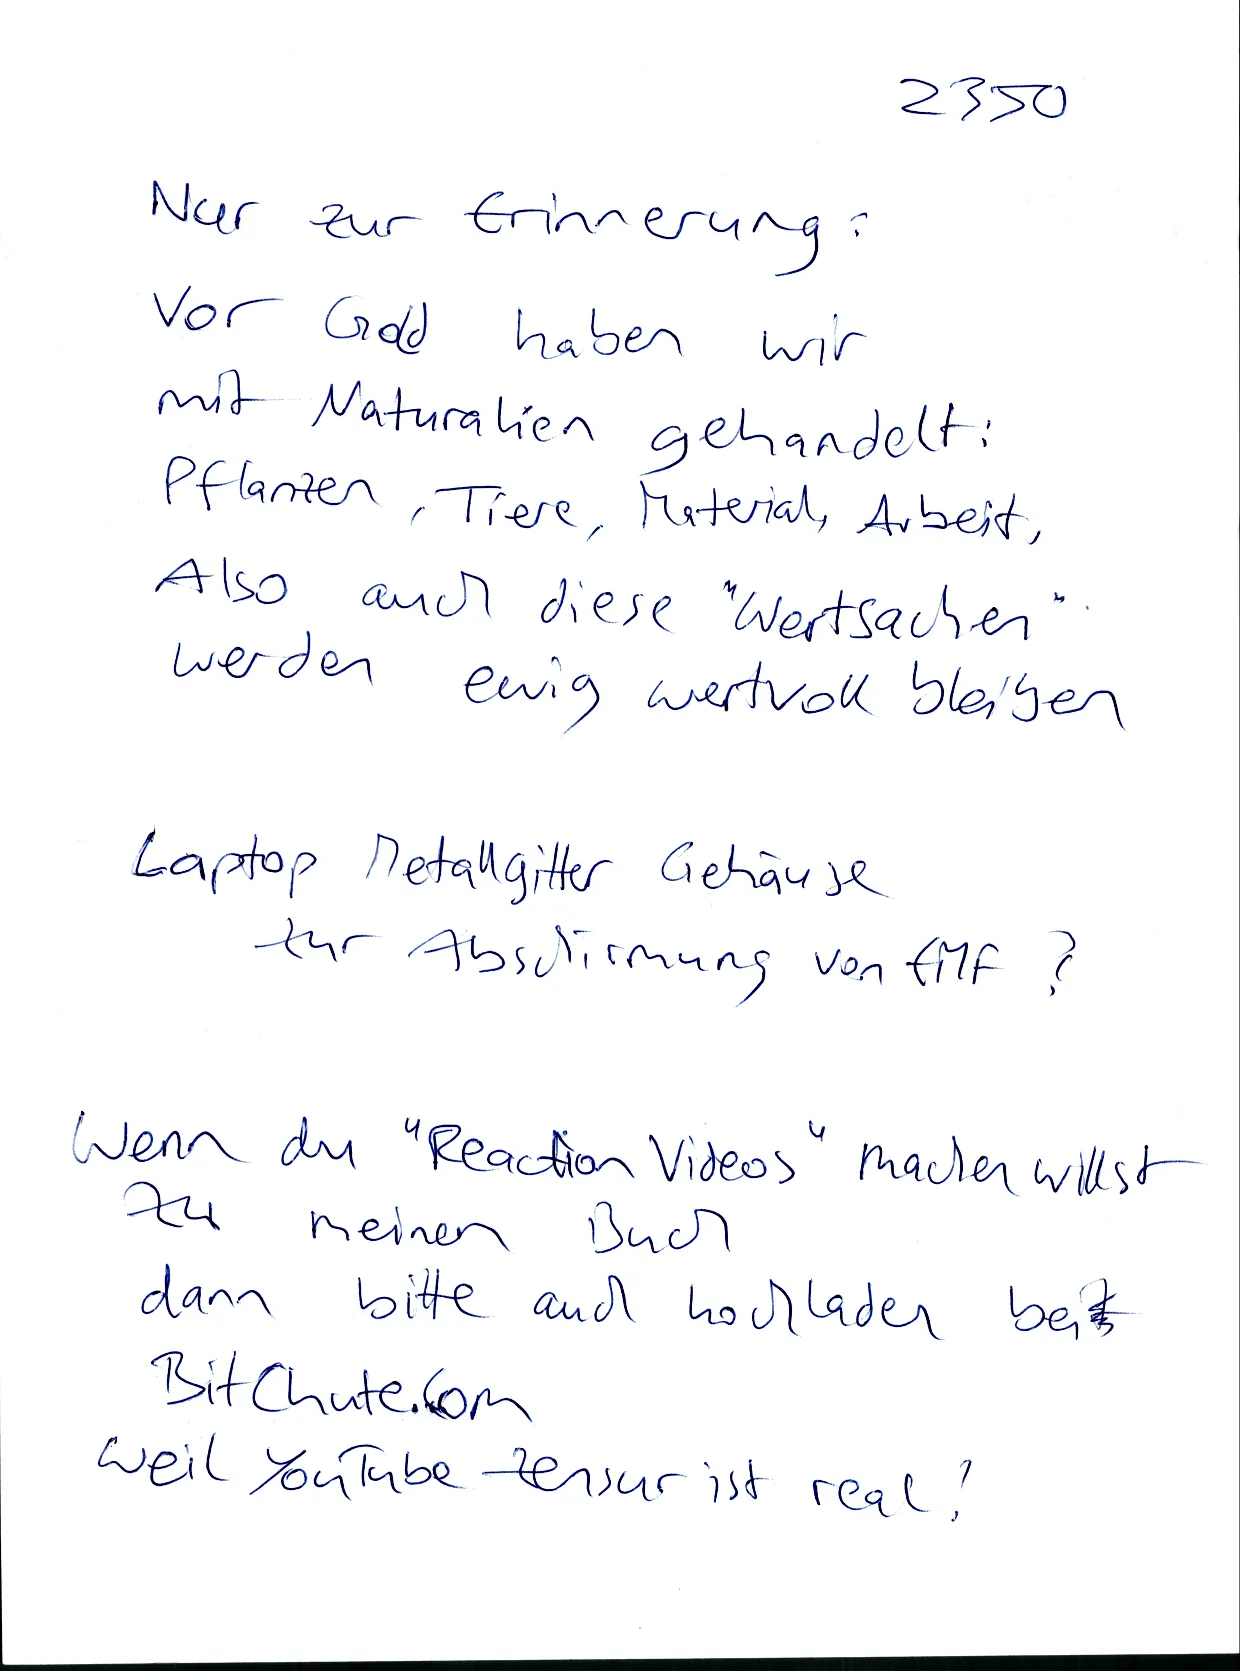 2350
Nur zur Erinnerung:
Vor Gold haben wir
mit Naturalien gehandelt:
Pflanzen, Tiere, Material, Arbeit,
Also auch diese "Wertsachen"
werden ewig wertvoll bleiben
Laptop Metallgitter Gehäuse
zur Abschirmung von EMF ?
Wenn du "Reaction Videos" machen willst
zu meinen Buch
dann bitte auch hochladen bei
BitChute.Com
weil YouTube Zensur ist real!